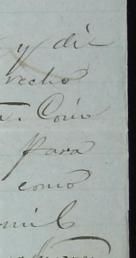 y dil
recho
a. Como
para
como
mil